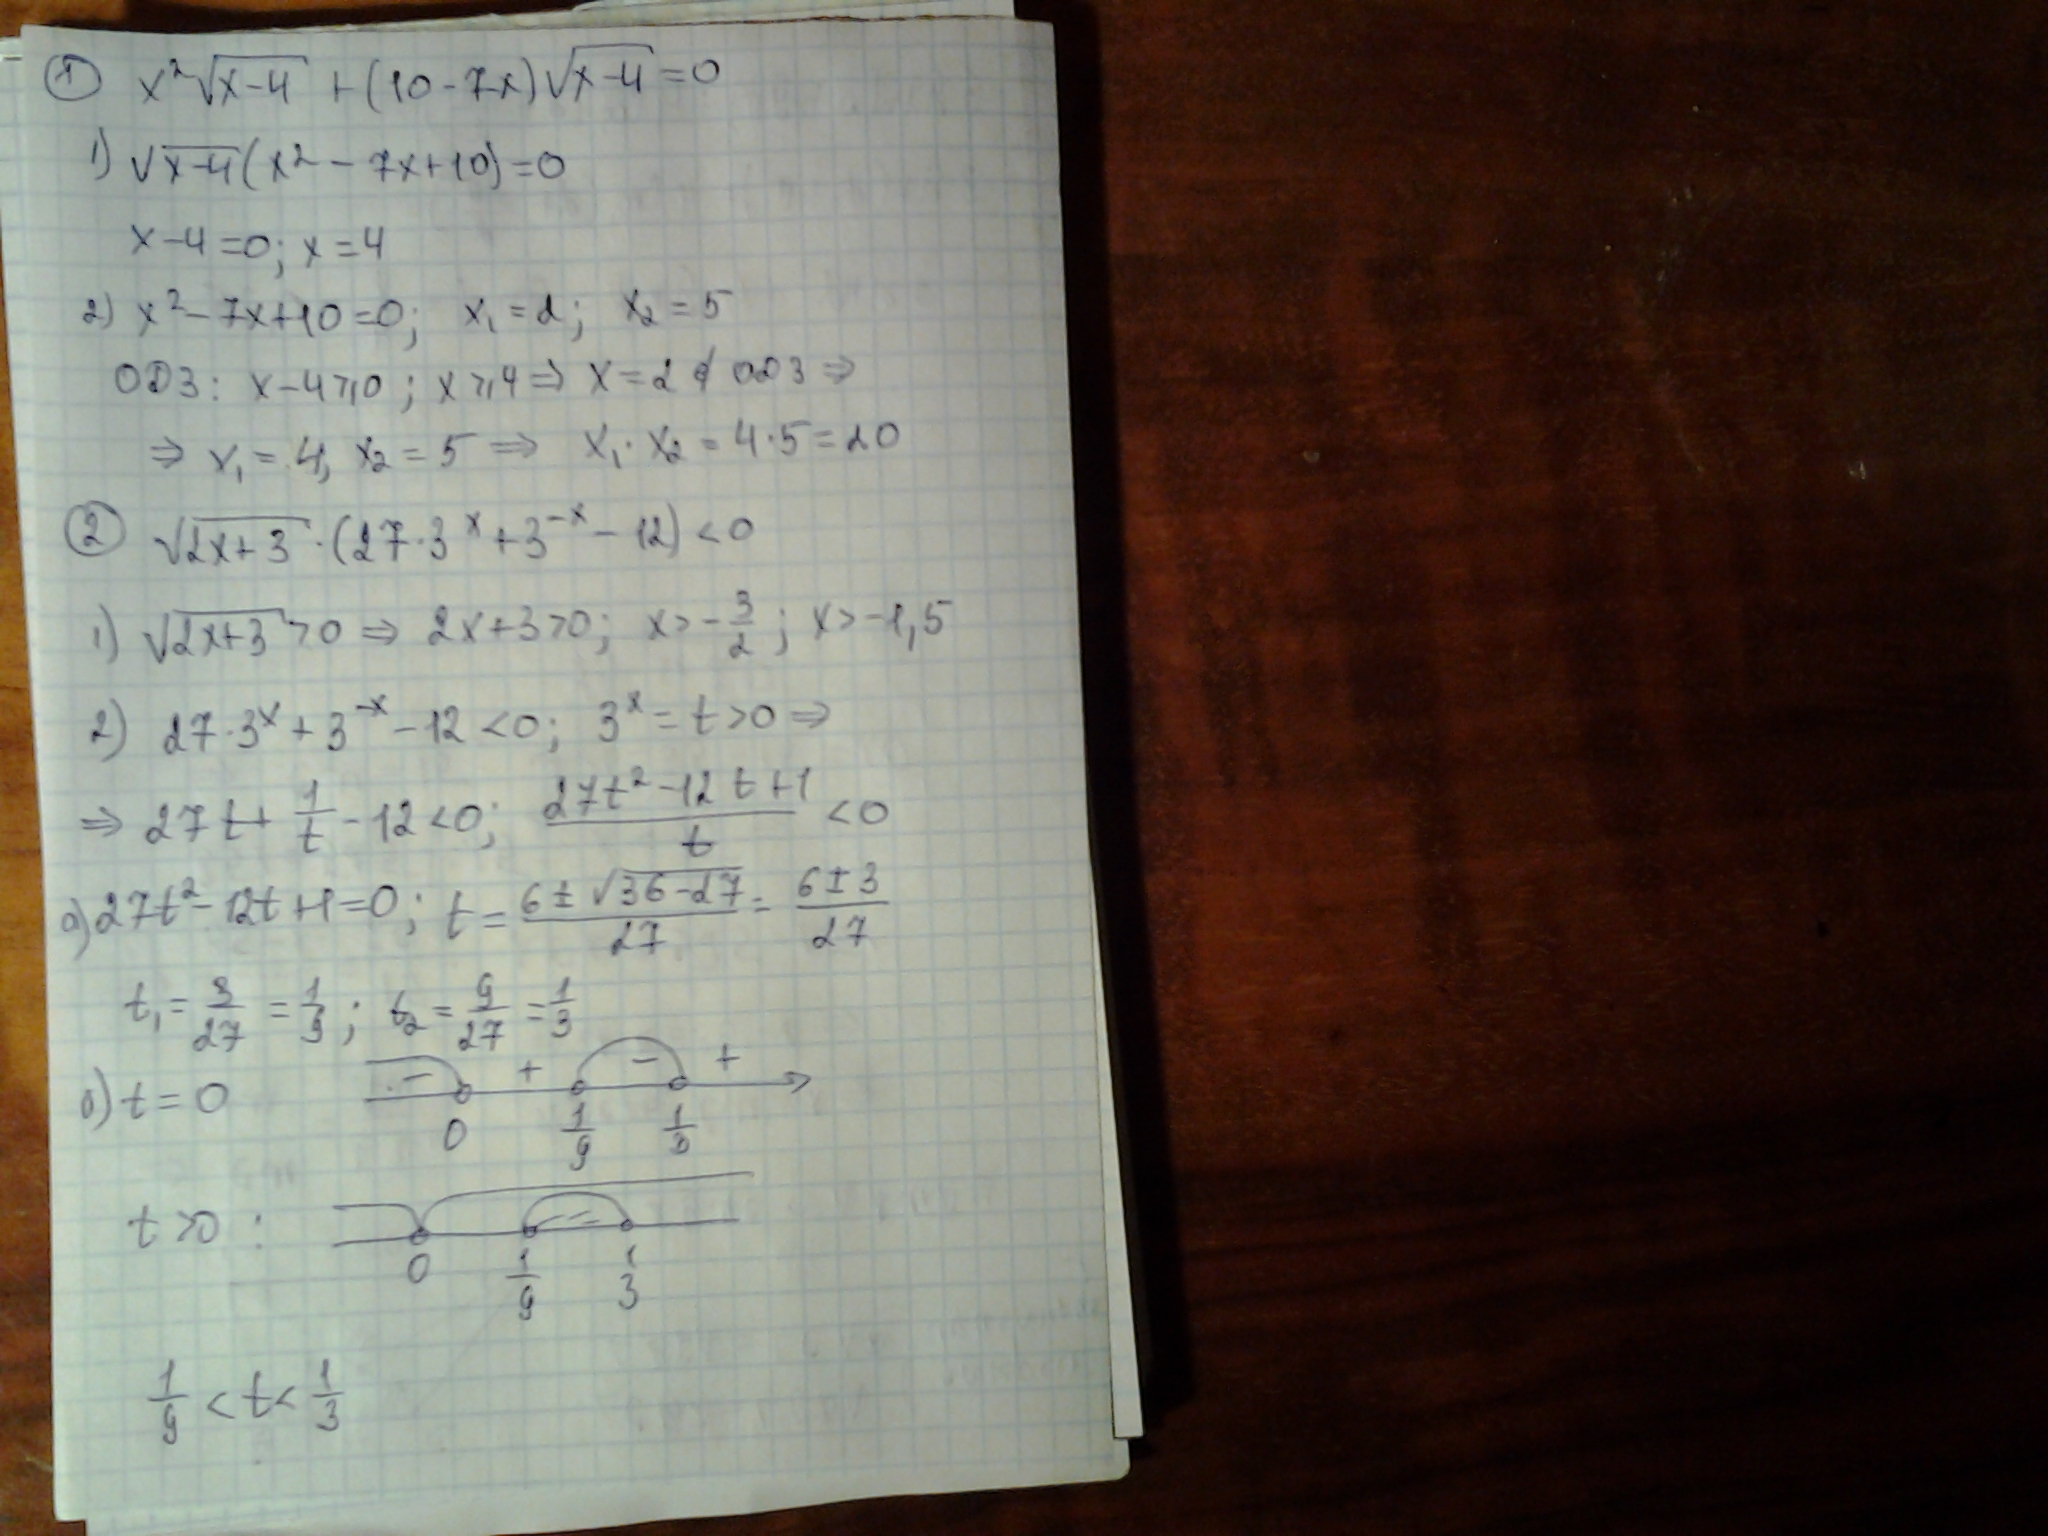 ① x²√(x-4) + (10-7x)√(x-4) = 0
1) √(x-4)(x² - 7x+10) = 0
x-4=0; x=4
2) x²-7x+10=0; x₁=2; x₂=5
ОДЗ: x-4⩾0; x⩾4 ⇒ x=2 ∉ ОДЗ ⇒
⇒ x₁=4, x₂=5 ⇒ x₁·x₂=4·5=20
② √(2x+3)·(27·3^x+3^(-x)-12)<0
1) √(2x+3)>0 ⇒ 2x+3>0; x>-3/2; x>-1,5
2) 27·3^x+3^(-x)-12<0; 3^x=t>0 ⇒
⇒ 27t+1/t-12<0; (27t²-12t+1)/t<0
а) 27t²-12t+1=0; t=(6±√(36-27))/27=(6±3)/27
t₁=3/27=1/9; t₂=9/27=1/3
б) t=0 - + - +
0 1/9 1/3
t>0:
0 1/9 1/3
1/9<t<1/3